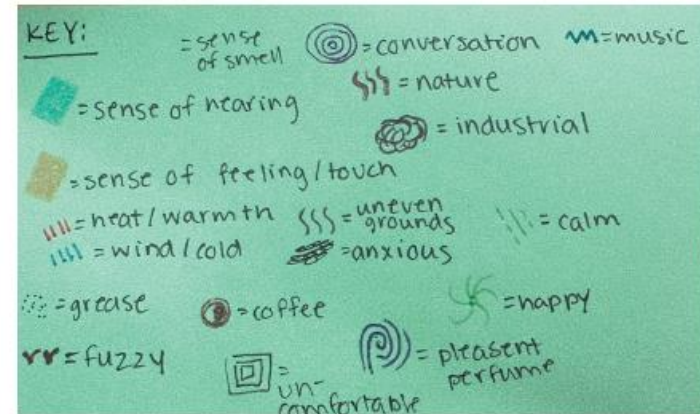 KEY:
= sense of smell
= conversation
= music
= sense of hearing
= nature
= industrial
= sense of feeling/touch
= heat/warmth
= uneven grounds
= calm
= wind/cold
= anxious
= grease
= coffee
= happy
rr = fuzzy
= un-comfortable
= pleasent perfume